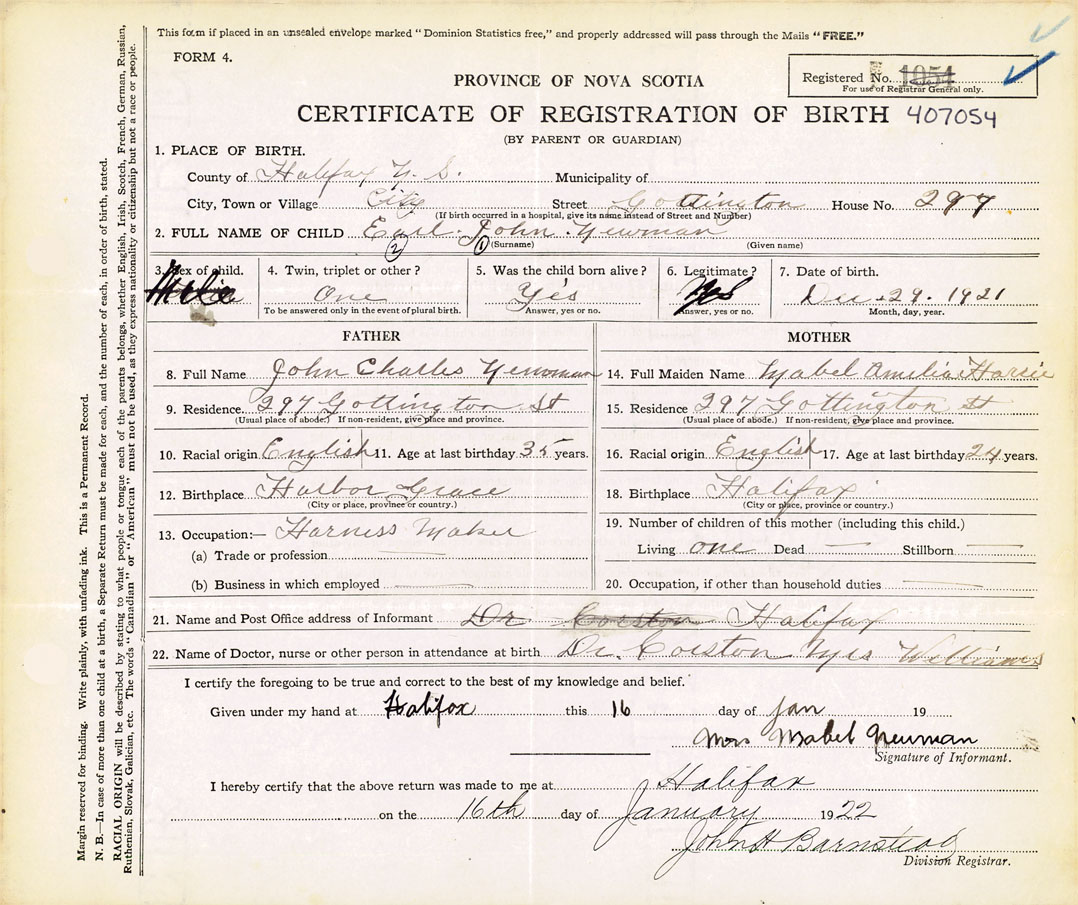 This form if placed in an unsealed envelope marked "Dominion Statistics free," and properly addressed will pass through the Mails "FREE."
FORM 4.
Registered No. 1054
For use of Registrar General only.
PROVINCE OF NOVA SCOTIA
CERTIFICATE OF REGISTRATION OF BIRTH 407054
(BY PARENT OR GUARDIAN)
1. PLACE OF BIRTH.
County of Halifax N. S. Municipality of
City, Town or Village City Street Gottington House No. 297
(If birth occurred in a hospital, give its name instead of Street and Number)
2. FULL NAME OF CHILD Earl John Newman
(2) (1) (Surname) (Given name)
3. Sex of child. 4. Twin, triplet or other? 5. Was the child born alive? 6. Legitimate? 7. Date of birth.
Male One Yes Yes Dec 29. 1921
To be answered only in the event of plural birth. Answer, yes or no. Answer, yes or no. Month, day, year.
FATHER MOTHER
8. Full Name John Charles Newman 14. Full Maiden Name Mabel Amelia
9. Residence. 297 Gottington St 15. Residence 297 Gottington St
(Usual place of abode.) If non-resident, give place and province. (Usual place of abode.) If non-resident, give place and province.
10. Racial origin English 11. Age at last birthday 35 years. 16. Racial origin English 17. Age at last birthday 24 years.
12. Birthplace Harbor Grace 18. Birthplace Halifax
(City or place, province or country.) (City or place, province or country.)
13. Occupation:— Harness Maker 19. Number of children of this mother (including this child.)
(a) Trade or profession Living one Dead — Stillborn —
(b) Business in which employed — 20. Occupation, if other than household duties —
21. Name and Post Office address of Informant Dr Corston Halifax
22. Name of Doctor, nurse or other person in attendance at birth Dr. Corston Mrs Williams
I certify the foregoing to be true and correct to the best of my knowledge and belief.
Given under my hand at Halifax this 16 day of Jan 19
Mrs Mabel Newman
Signature of Informant.
I hereby certify that the above return was made to me at Halifax
on the 16th day of January 1922
John H Barnstead
Division Registrar.
Margin reserved for binding. Write plainly, with unfading ink. This is a Permanent Record.
N. B.—In case of more than one child at a birth, a Separate Return must be made for each, and the number of each, in order of birth, stated.
RACIAL ORIGIN will be described by stating to what people or tongue each of the parents belongs, whether English, Irish, Scotch, French, German, Russian,
Ruthenian, Slovak, Galician, etc. The words "Canadian" or "American" must not be used, as they express nationality or citizenship but not a race or people.